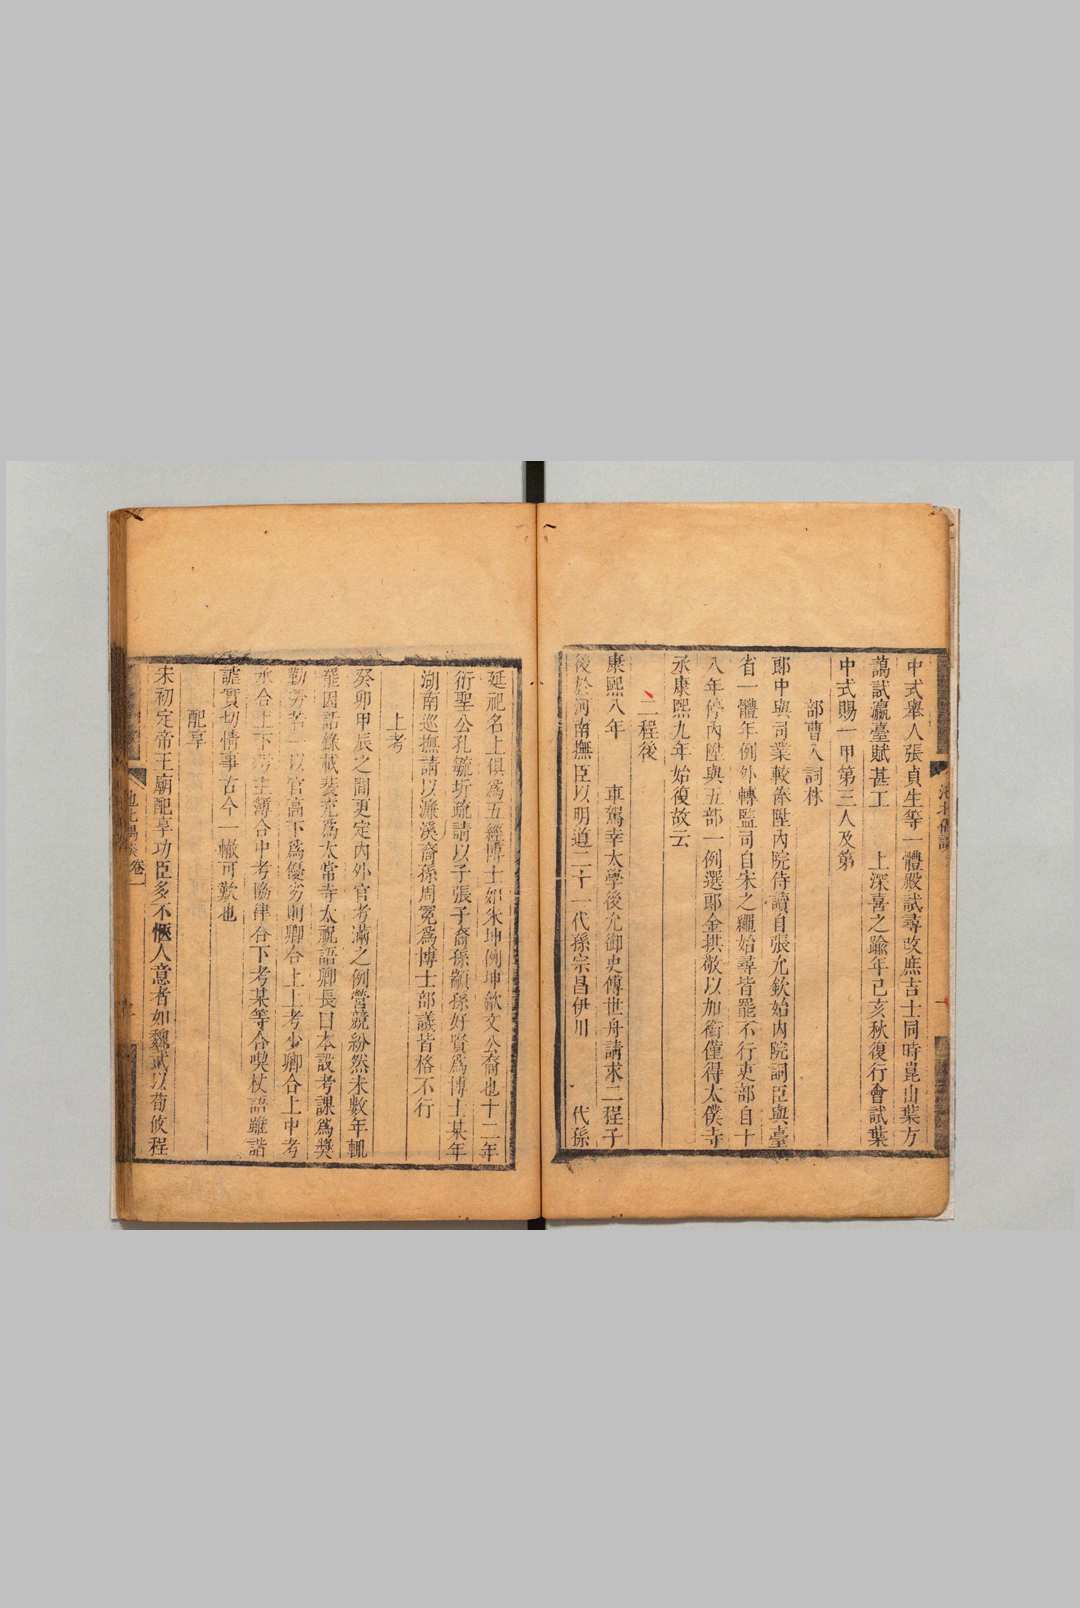 中式舉人張貞生等一體殿試尋改庶吉士同時崑山葉方
藹試瀛臺賦甚工　上深喜之踰年己亥秋復行會試葉
中式賜一甲第三人及第
部曹入詞林
郎中與司業較俸陞內院侍讀自張允欽始內院詞臣與臺
省一體年例外轉監司自宋之繩始尋皆罷不行吏部自十
八年停內陞與五部一例選郎金拱敬以加銜僅得太僕寺
丞康熙九年始復故云
二程後
康熙八年　車駕幸太學後允御史傅世舟請求二程子
後於河南撫臣以明道二十一代孫宗昌伊川　　代孫
延祀名上俱爲五經博士如朱坤例坤歙文公裔也十二年
衍聖公孔毓圻疏請以子張子裔孫顓孫好賢爲博士某年
湖南巡撫請以濂溪裔孫周冕爲博士部議皆格不行
上考
癸卯甲辰之間更定內外官考滿之例營競紛然未數年輒
罷因語錄載裴充爲太常寺太祝語卿長曰本設考課爲獎
勤勞若一以官高下爲優劣則卿合上上考少卿合上中考
丞合上下考主簿合中考協律合下考某等合喫杖語雖詣
謔實切情事古今一轍可歎也
配享
宋初定帝王廟配享功臣多不愜人意者如魏武以荀攸程
池北偶談
池北偶談卷一